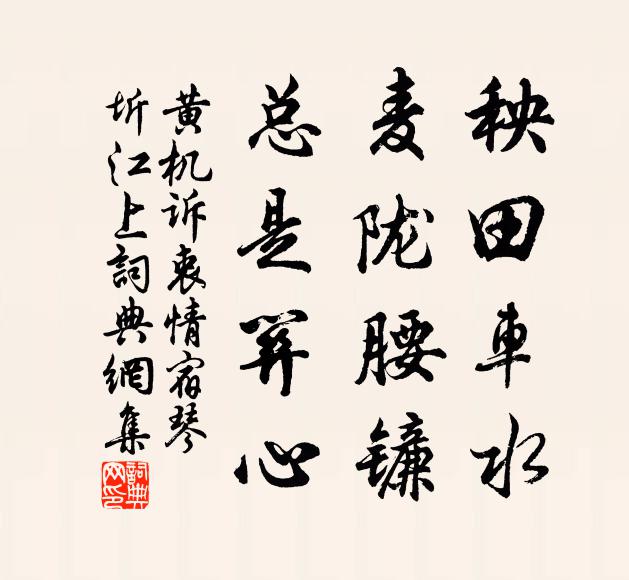 秧田車水
麦陇腰镰
总是關心
黄机诉衷情宿琴
圻江上詞典網集
詞典
网印